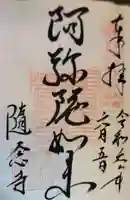 奉拝
令和元年
六月五日
阿弥陀如来
隨念寺